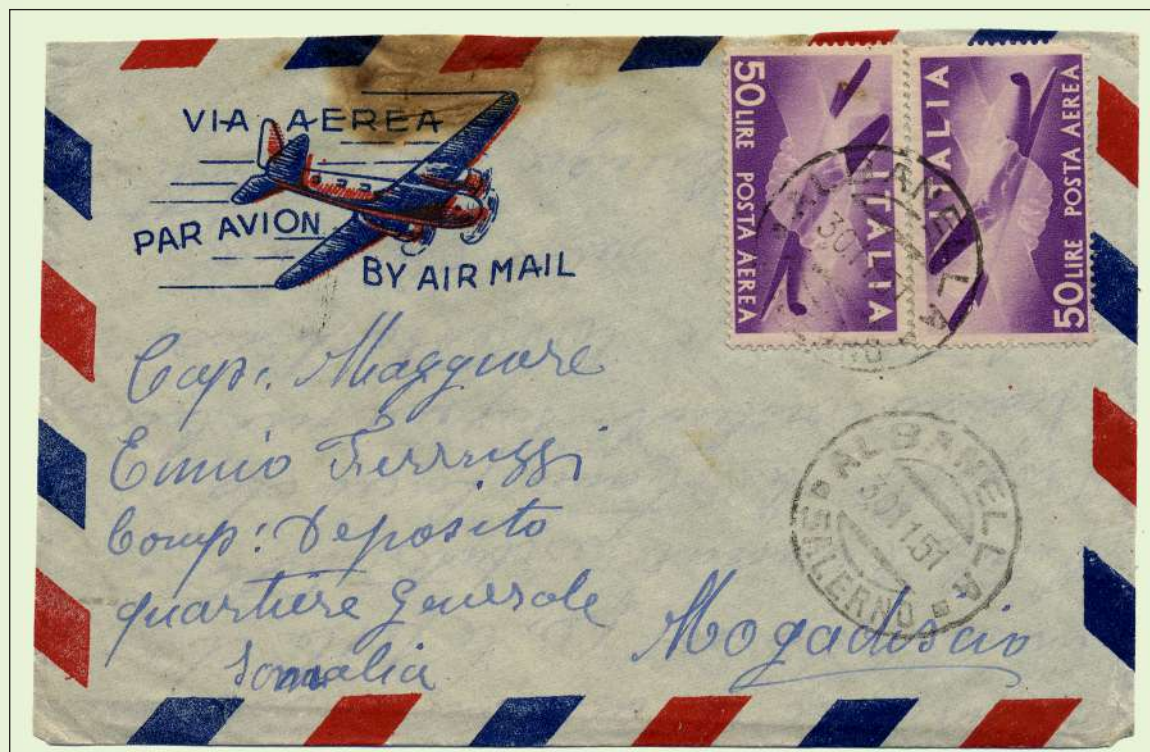 VIA AEREA
PAR AVION
BY AIR MAIL
50 LIRE POSTA AEREA
ITALIA
ITALIA
50 LIRE POSTA AEREA
ALBANELLA
SALERNO
Cap: Maggiore
Ennio
Comp: Deposito
quartiere Generale
Somalia
Mogadiscio